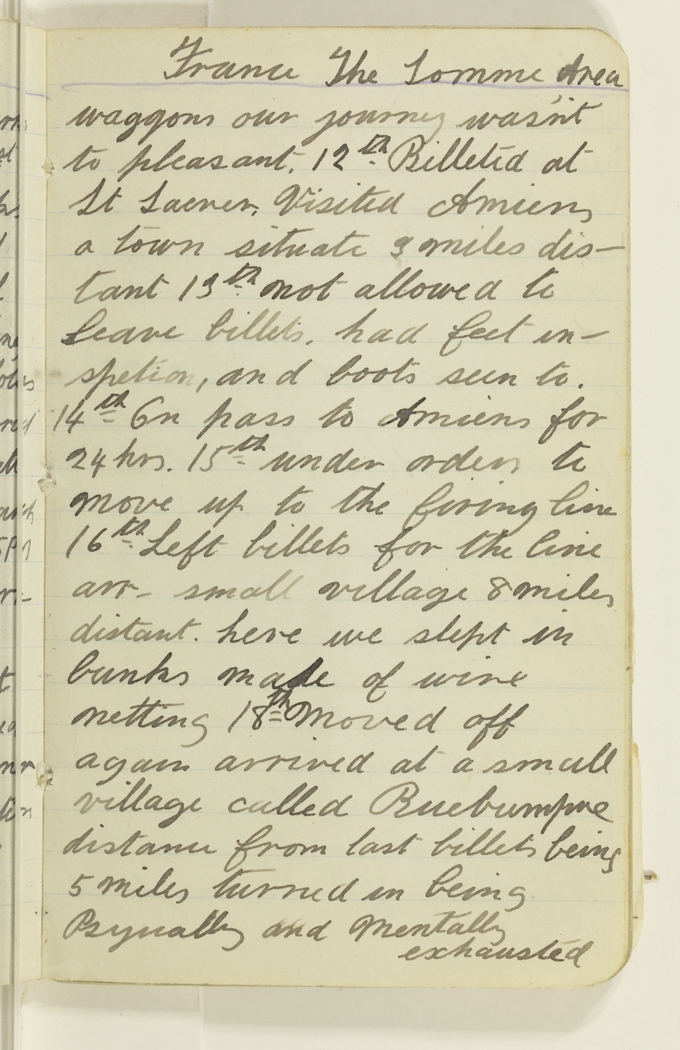 France The Somme Area
waggons our journey wasn't
to pleasant. 12th Billetid at
St Saever. Visited Amiens
a town situate 3 miles dis-
tant 13th not allowed to
leave billets. had feet in-
spetion, and boots seen to.
14th On pass to Amiens for
24 hrs. 15th under orders to
move up to the firing line
16th Left billets for the line
arr- small village 8 miles
distant. here we slept in
bunks made of wire
netting 18th moved off
again arrived at a small
village called Ruebumpre
distance from last billets being
5 miles turned in being
Psyually and Mentally
exhausted